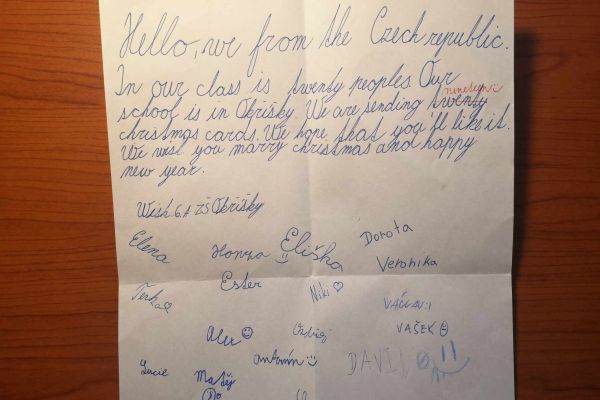 Hello, we from the Czech republic.
In our class is twenty peoples Our
nineteen :)
school is in Okříšky. We are sending twenty
christmas cards. We hope that you'll like it.
We wish you marry christmas and happy
new year.
Wish 6.A ZŠ Okříšky
Elena Honza Eliška Dorota
Veronika
Ester
Terka Niki
VÁCLAV :)
VAŠEK
Antonín :) DAVID
Lucie Matěj